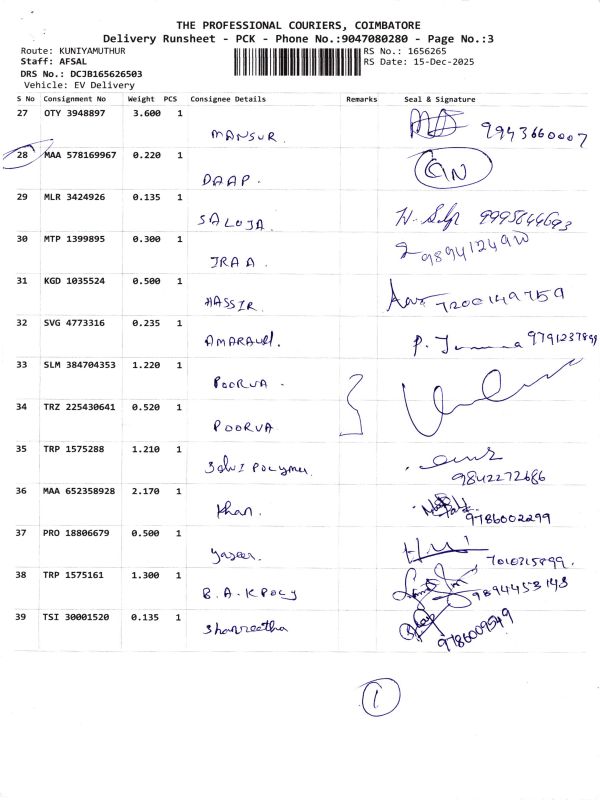 THE PROFESSIONAL COURIERS, COIMBATORE
Delivery Runsheet - PCK - Phone No.:9047080280 - Page No.:3
Route: KUNIYAMUTHUR RS No.: 1656265
Staff: AFSAL RS Date: 15-Dec-2025
DRS No.: DCJB165626503
Vehicle: EV Delivery
S No Consignment No Weight PCS Consignee Details Remarks Seal & Signature
27 OTY 3948897 3.600 1
MANSUR. 9943660007
28 MAA 578169967 0.220 1
DAAP.
29 MLR 3424926 0.135 1
SALOJA 9995844693
30 MTP 1399895 0.300 1
IRAA.
31 KGD 1035524 0.500 1
HASSIR. 7200149759
32 SVG 4773316 0.235 1
P. 9791237899
33 SLM 384704353 1.220 1
POORVA.
34 TRZ 225430641 0.520 1
POORVA
35 TRP 1575288 1.210 1
Polymer 9842272686
36 MAA 652358928 2.170 1
Khan. 9786002299
37 PRO 18806679 0.500 1
Yaseer. 7010315899.
38 TRP 1575161 1.300 1
B.A.K POLY 9894453143
39 TSI 30001520 0.135 1
Shanreetha 9786009549
1